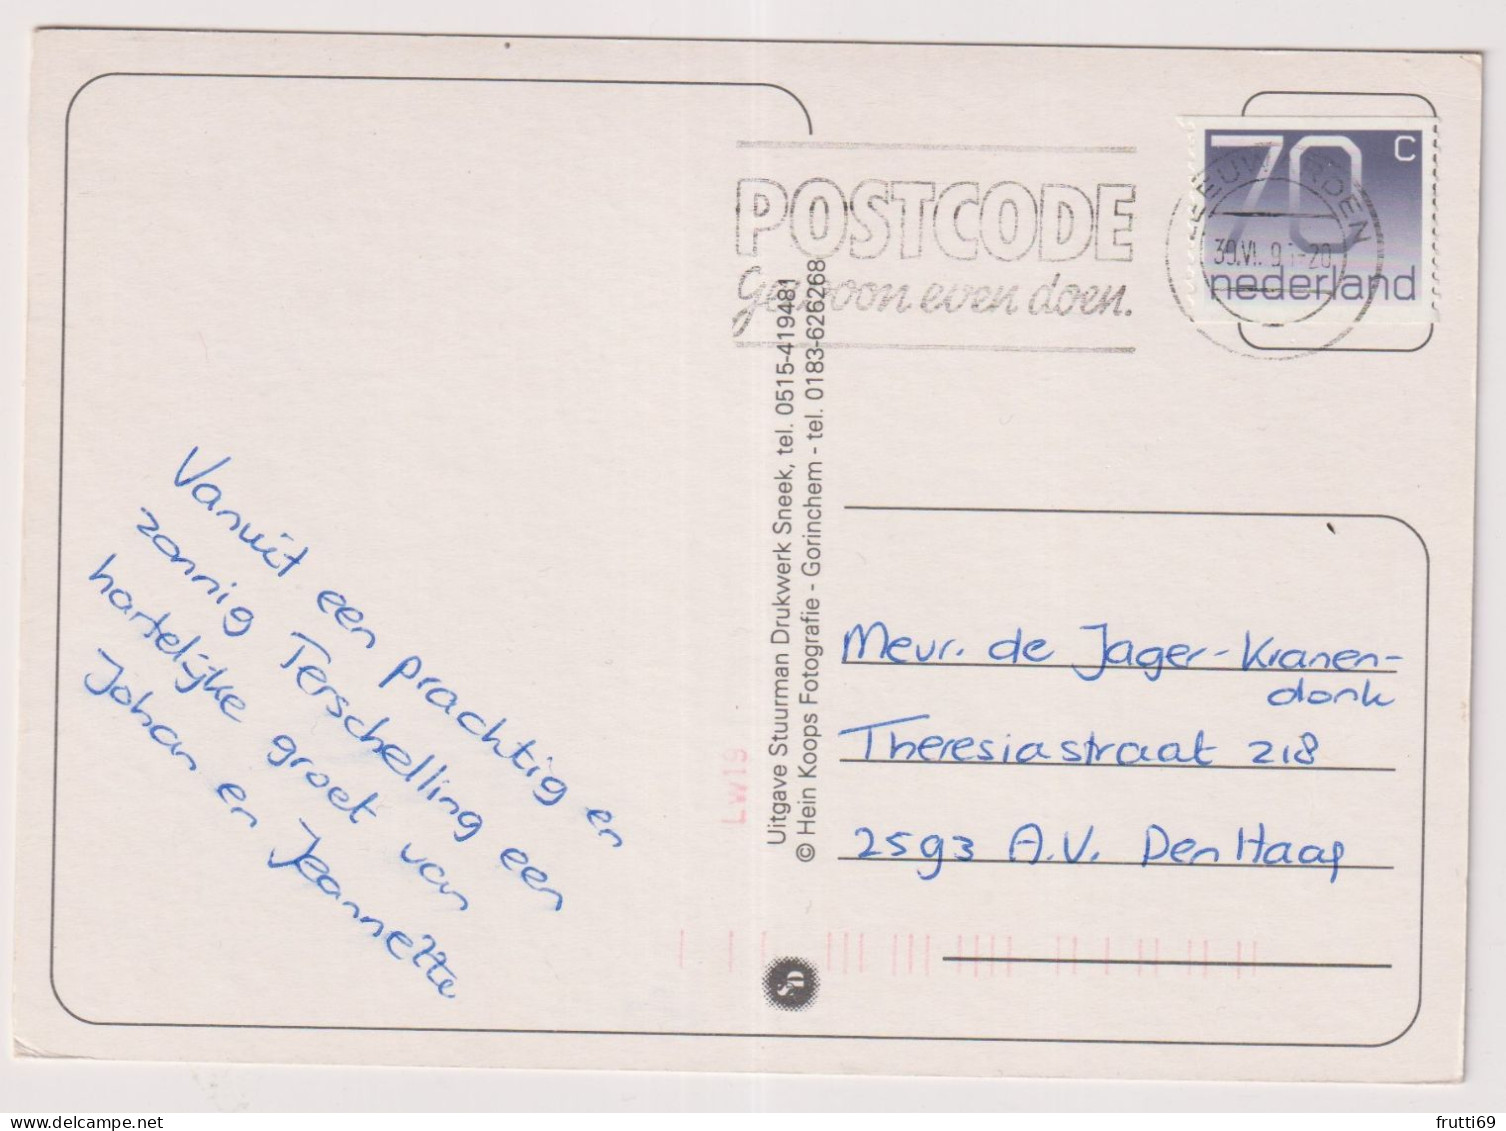 POSTCODE
Gewoon even doen.
70 c
nederland
LEEUWARDEN
Vanuit een prachtig en
zonnig Terschelling een
hartelijke groet van
Johan en Jeannette
Uitgave Stuurman Drukwerk Sneek, tel. 0515-419481
© Hein Koops Fotografie - Gorinchem - tel. 0183-626268
LW19
SD
Mevr. de Jager-Kranen-
donk
Theresiastraat 218
2593 A.V. Den Haag
frutti69